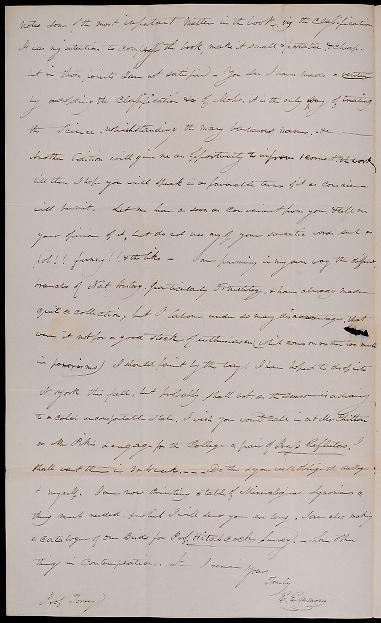 notes some of the most important matter in the book, viz the Classification
It was my intention to compress the book, make it small & portable & cheap.
in those points I am not satisfied - You see I have made a venture
by adopting the Classification &c of Mohs. it is the only way of treating
the Science, notwithstanding the many barbarous names. &c
Another Edition would give me an opportunity to improve & correct the work
till then I hope you will speak in as favorable terms of it as conscience
will permit. Let me hear as soon as convenient from you & tell me
your opinion of it, but do not use any of your sarcastic words such as
poh!! funny!! & the like - I am pursuing in my own way the different
branches of Nat History, particularly & have already made
quite a collection, but I labour under so many disadvantages, that
were it not for a good stock of enthusiasm, which comes on rather too much
in paroxisms) I should faint by the way. I have hoped to
N york this fall, but probably shall not as the season is advancing
to a cold uncomfortable state. I wish you would call in at Mr
or Mr & engage for the College a pair of Brass Reflectors. I
shall want them in weeks. - - - Do this & you will oblige the college
& myself. I am now printing a table of Mineralogical Synonims a
thing much needed I will send you one ere long. I am also making
a catalogue of our Birds for Prof. Hitchcock's Survey. - Some other
things in Contemplation. I remain Yours
Truly
E. Emmons
Prof. Torrey